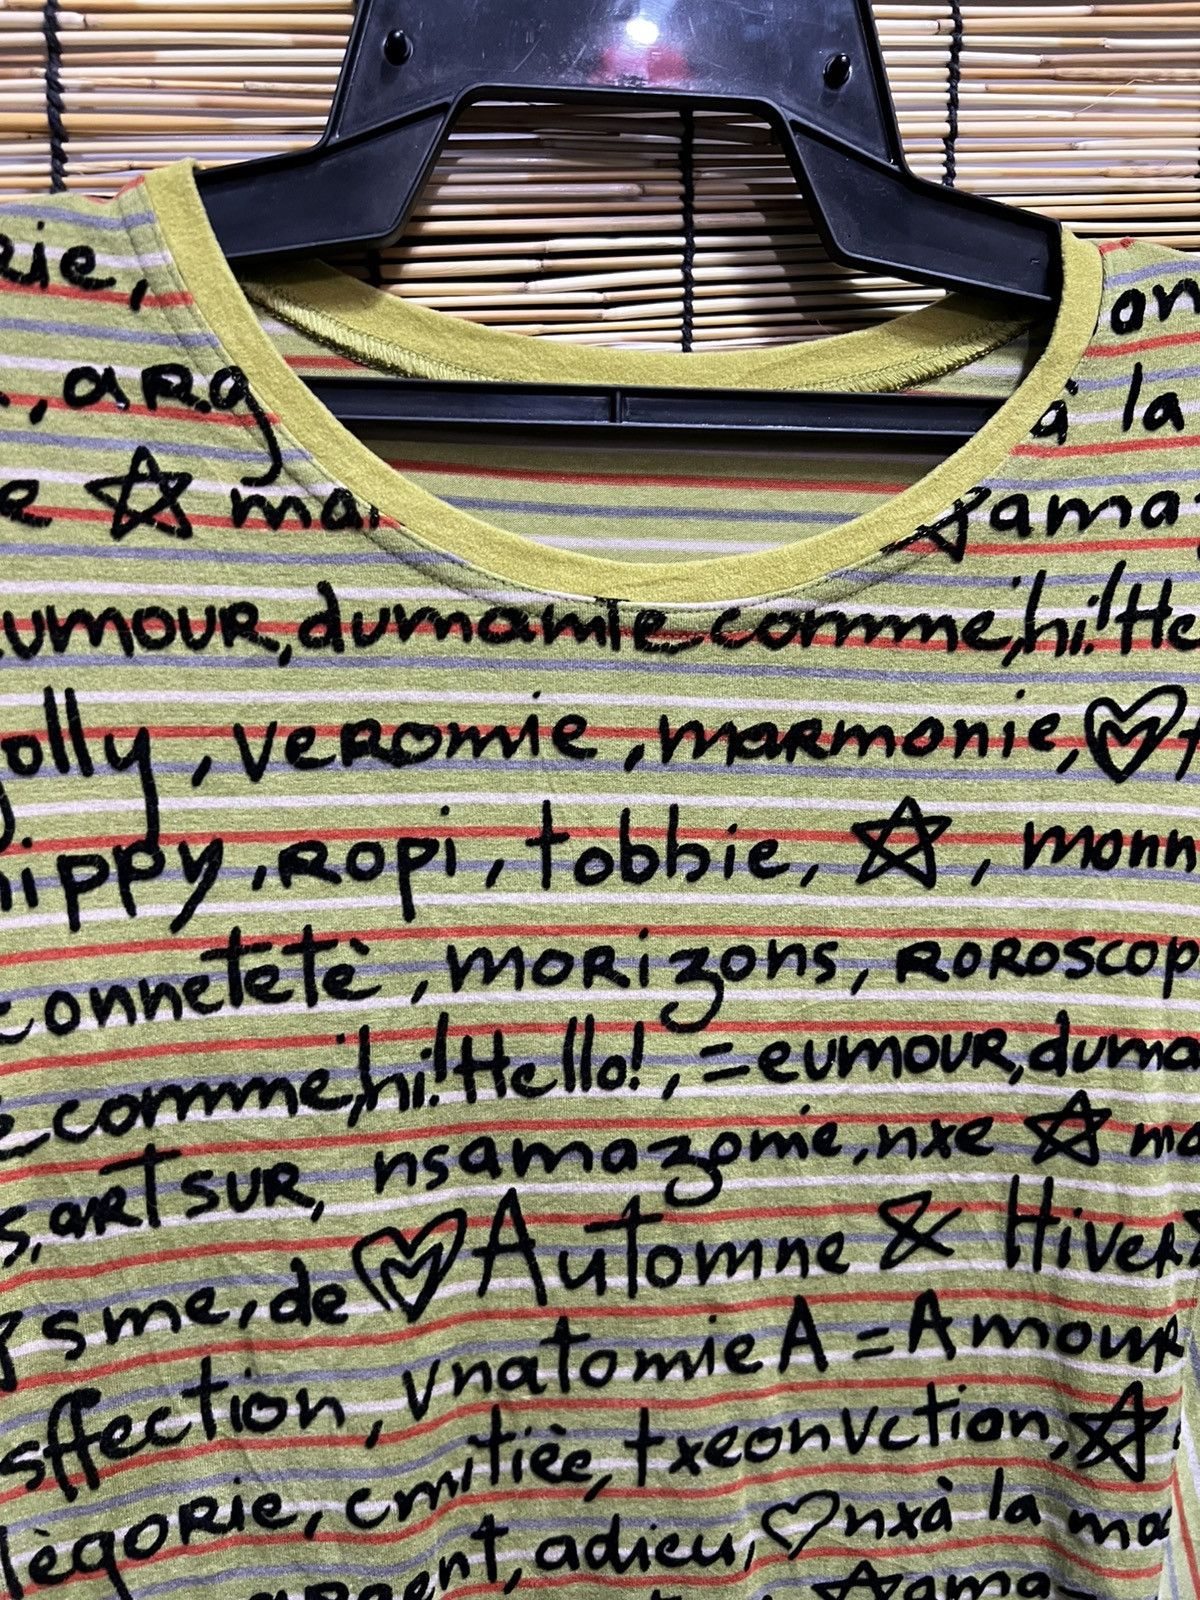 rie, on
, arg à la
e ☆ ma gama
eumour, dumamie comme, hi! He
jolly, veromie, marmonie, ♡
hippy, ropi, tobbie, ☆, monn
connetetè, morizons, roroscop
comme, hi! Hello!, = eumour, duma
s, artsur, nsamazomie, nxe ☆ ma
sme, de ♡ Automne & Hiver
sffection, vnatomie A = Amour
lègorie, cmitièe, txeonvction, ☆
argent, adieu, ♡ nxà la ma
☆ gama